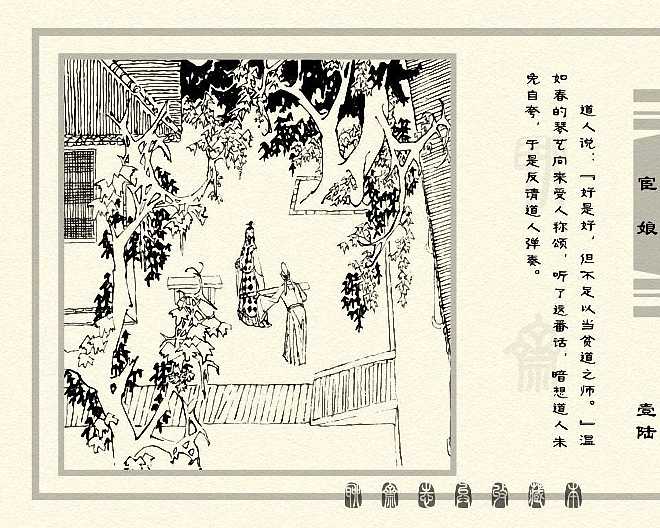 道人说：“好是好，但不足以当贫道之师。”温
如春的琴艺向来受人称颂，听了这番话，暗想道人未
免自夸，于是反请道人弹奏。
宦娘
壹陆